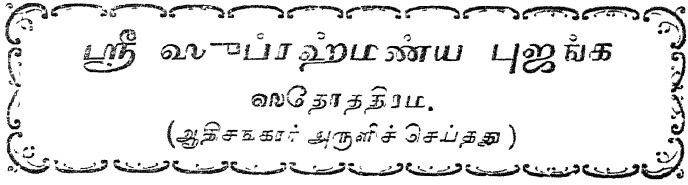 ஸ்ரீ ஸுப்ரஹ்மண்ய புஜங்க
ஸ்தோத்திரம்.
(ஆதிசங்கரர் அருளிச் செய்தது)